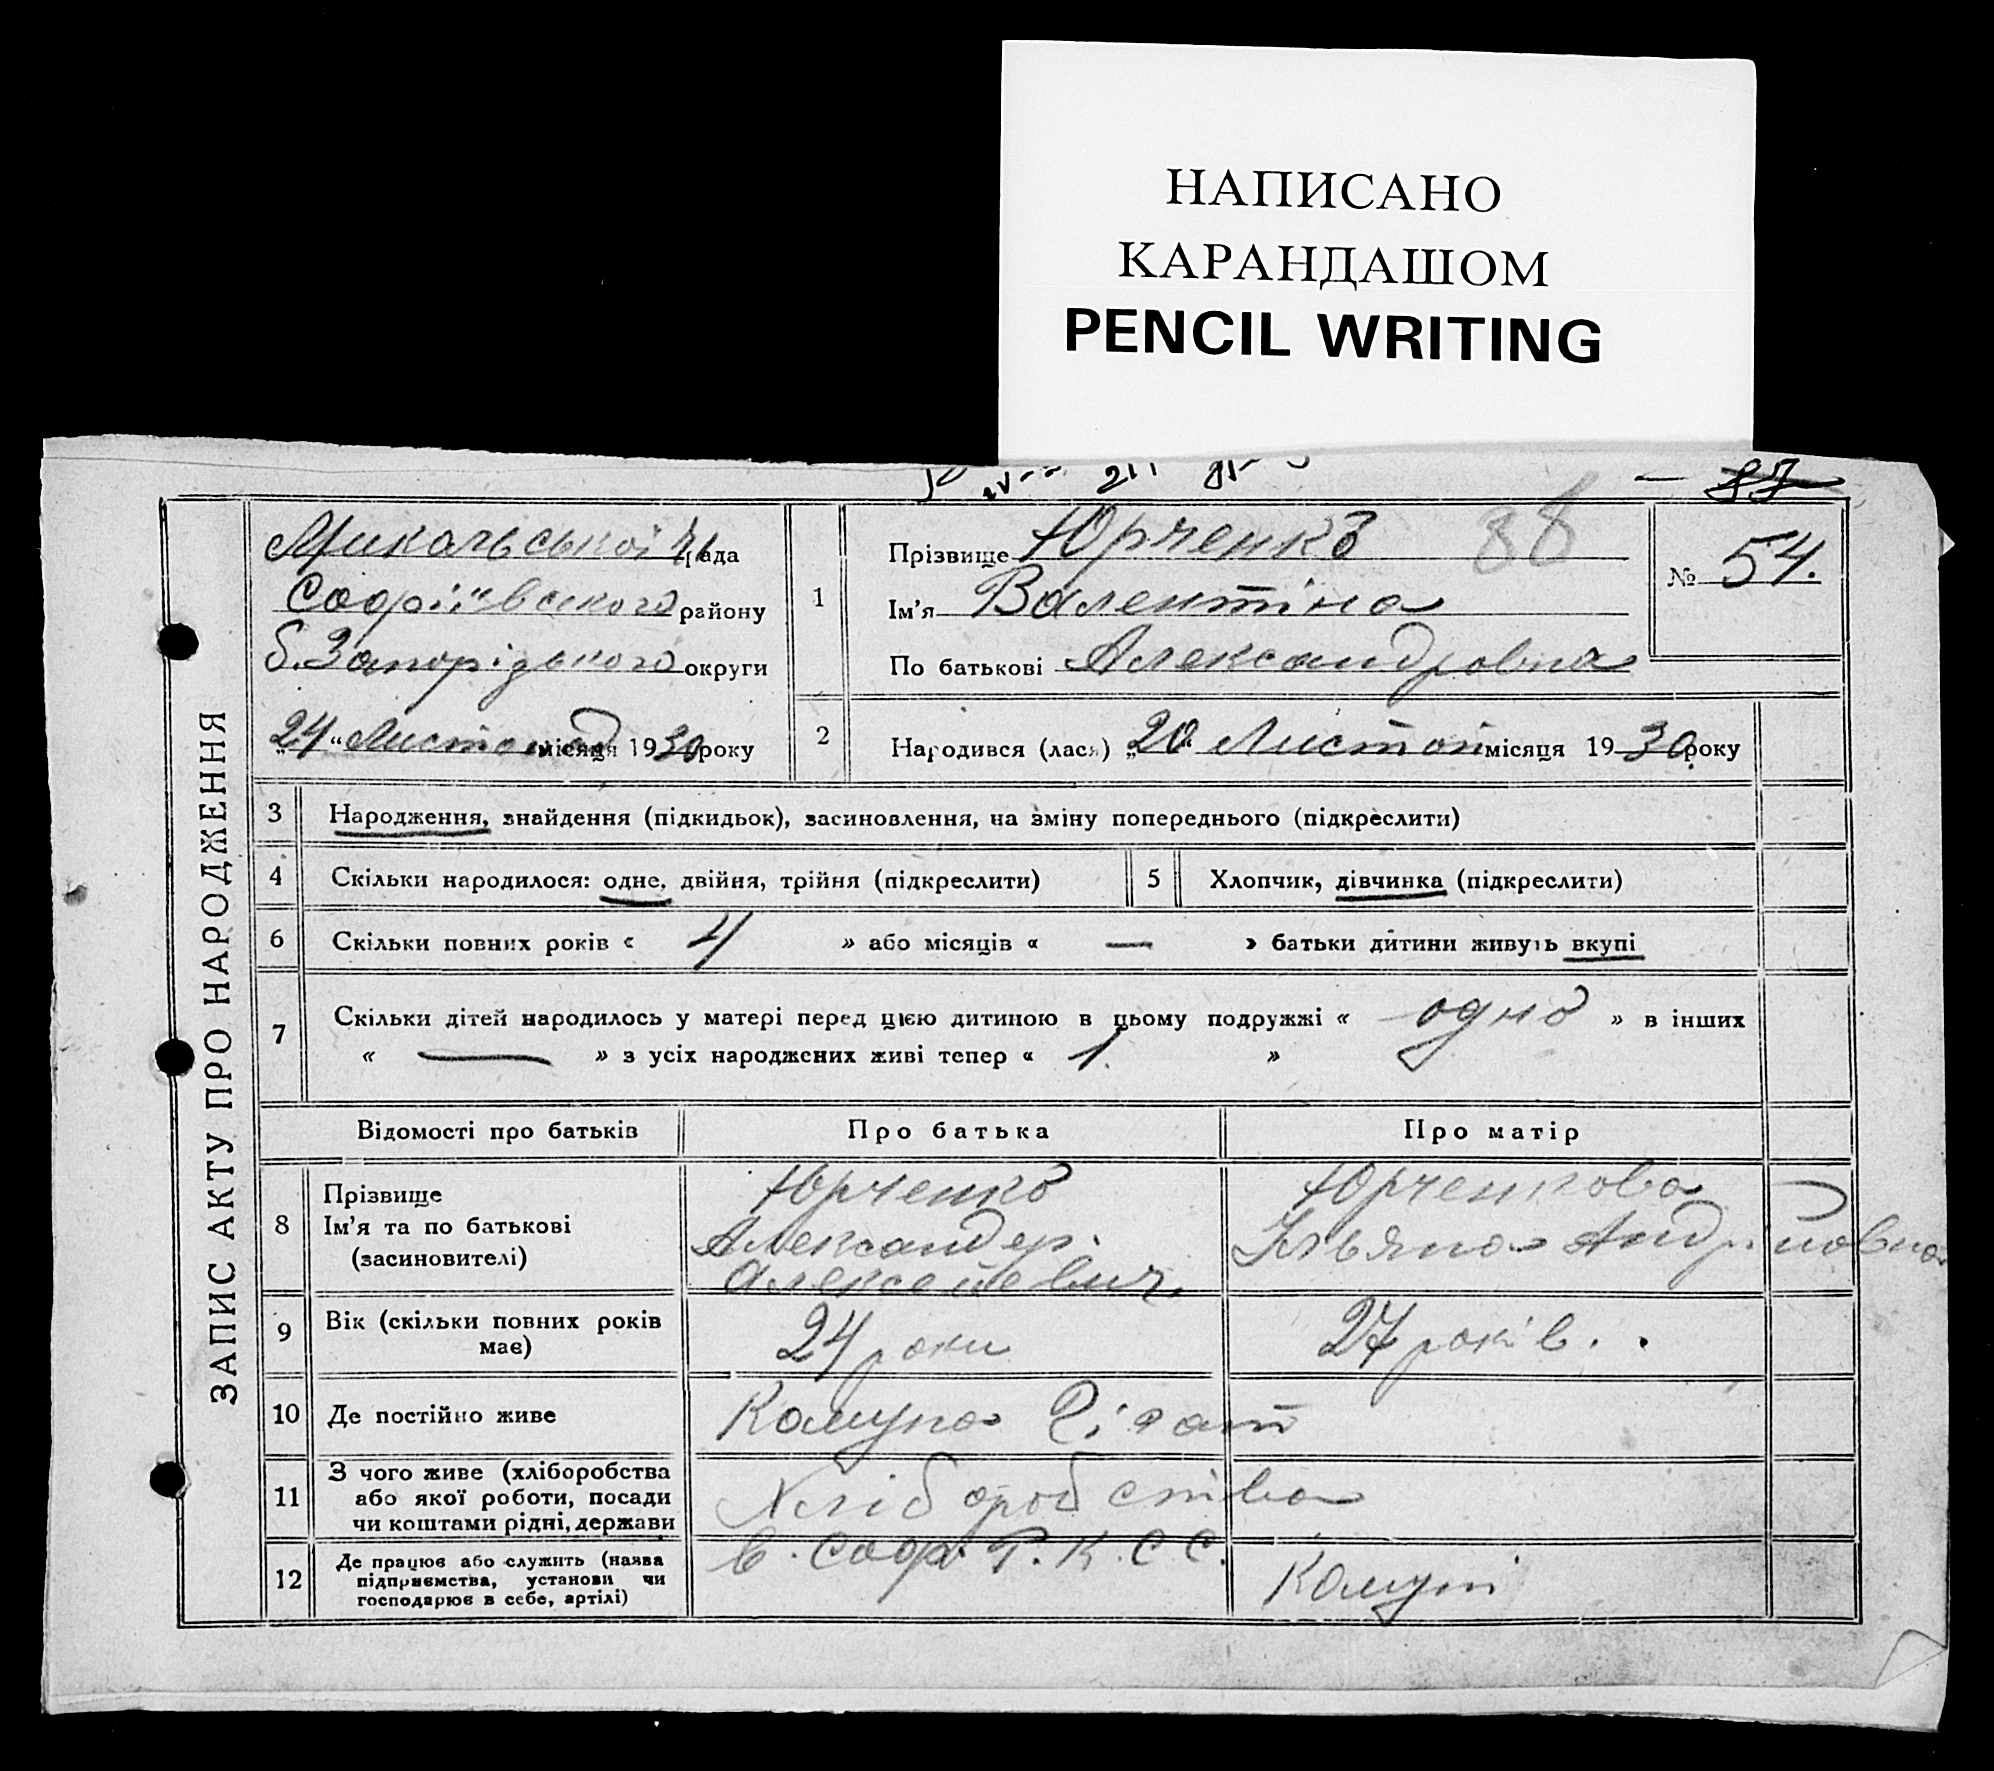 НАПИСАНО
КАРАНДАШОМ
PENCIL WRITING
87
ЗАПИС АКТУ ПРО НАРОДЖЕННЯ
рада
Софіївського району
б. Запорізького округи
„24“ Листопад місяця 1930 року
1
Прізвище Юрченко 88
Ім'я Валентіна
По батькові Александровна
№ 54.
2
Народився (лася) „20“ Листоп місяця 1930 року
3 Народження, знайдення (підкидьок), засиновлення, на зміну попереднього (підкреслити)
4 Скільки народилося: одне, двійня, трійня (підкреслити) 5 Хлопчик, дівчинка (підкреслити)
6 Скільки повних років « 4 » або місяців « — » батьки дитини живуть вкупі
7 Скільки дітей народилось у матері перед цією дитиною в цьому подружжі « одно » в інших
« — » з усіх народжених живі тепер « 1. »
Відомості про батьків Про батька Про матір
8 Прізвище
Ім'я та по батькові
(засиновителі)
Юрченко
Александер.
Алексеевич.
Юрченкова
Ульяна
9 Вік (скільки повних років
має)
24 роки
27 років.
10 Де постійно живе Комуна Гігант
11 З чого живе (хліборобства
або якої роботи, посади
чи коштами рідні, держави
Хліборобства
12 Де працює або служить (наява
підприємства, установи чи
господарює в себе, артілі)
в. Соф. Р. К. С С.
Комуні